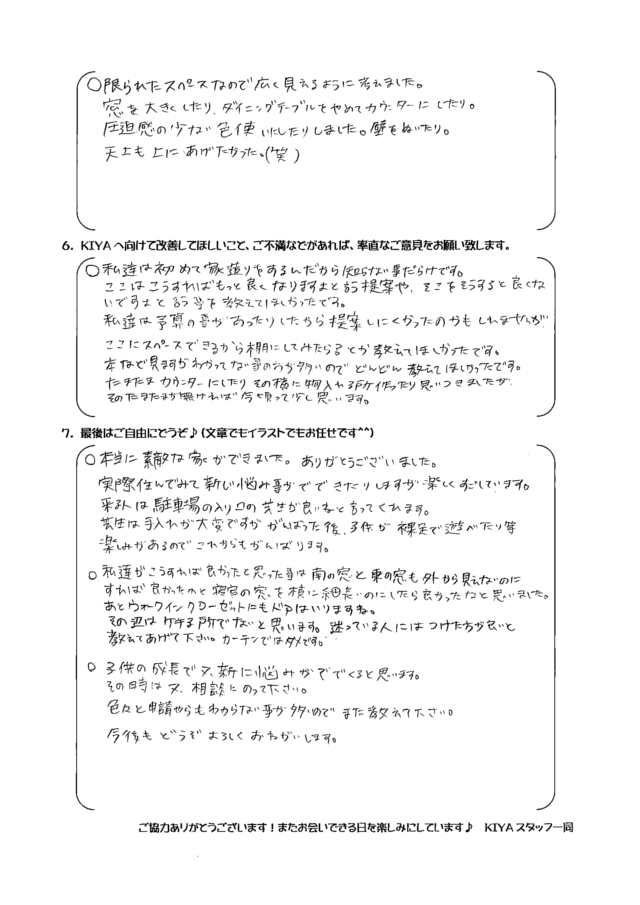 ○限られたスペースなので広く見えるように考えました。
窓を大きくしたり、ダイニングテーブルをやめてカウンターにしたり。
圧迫感の少ない色使いにしたりしました。壁をぬいたり。
天上も上にあげたかった。(笑)
6. KIYAへ向けて改善してほしいこと、ご不満などがあれば、率直なご意見をお願い致します。
○私達は初めて家造りをするんだから知らない事だらけです。
ここはこうすればもっと良くなりますよと言う提案や、そこをそうすると良くな
いですよと言う事を教えてほしかったです。
私達は予算の事があったりしたから提案しにくかったのかもしれませんが
ここにスペースできるから棚にしてみたら?とか教えてほしかったです。
本など見ますがわかってない事の方が多いので どんどん教えてほしかったです。
たまたまカウンターにしたり その横に物入れる所作ったり思いつきましたが、
そのたまたまが無ければ 今頃って少し思います。
7. 最後はご自由にどうぞ♪(文章でもイラストでもお任せです^^)
○本当に素敵な家ができました。ありがとうございました。
実際住んでみて新しい悩み事がでてきたりしますが楽しくすごしています。
来る人は駐車場の入り口の芝生が良いねと言ってくれます。
芝生は手入れが大変ですが がんばった後、子供が裸足で遊べたり等
楽しみがあるのでこれからもがんばります。
○私達がこうすれば良かったと思った事は南の窓と東の窓も外から見えないのに
すれば良かったのと寝室の窓を横に細長いのにしたら良かったなと思いました。
あとウォークインクローゼットにもドアはいりますね。
その辺はケチる所でないと思います。迷っている人にはつけた方が良いと
教えてあげて下さい。カーテンではダメです。
○子供の成長で又、新に悩みがでてくると思います。
その時は又、相談にのって下さい。
色々と申請やらもわからない事が多いので また教えて下さい。
今後も どうぞ よろしく おねがいします。
ご協力ありがとうございます!またお会いできる日を楽しみにしています♪ KIYAスタッフ一同